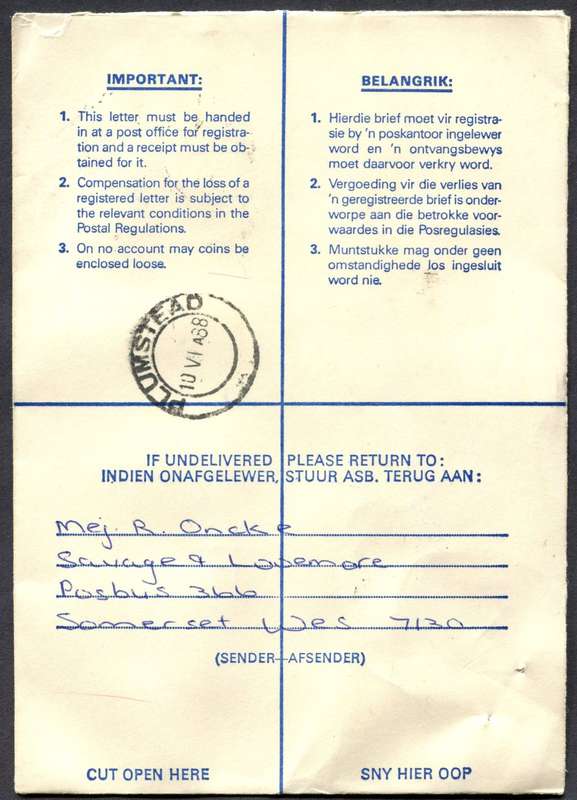 IMPORTANT:
1. This letter must be handed
in at a post office for registra-
tion and a receipt must be ob-
tained for it.
2. Compensation for the loss of a
registered letter is subject to
the relevant conditions in the
Postal Regulations.
3. On no account may coins be
enclosed loose.
BELANGRIK:
1. Hierdie brief moet vir registra-
sie by 'n poskantoor ingelewer
word en 'n ontvangsbewys
moet daarvoor verkry word.
2. Vergoeding vir die verlies van
'n geregistreerde brief is onder-
worpe aan die betrokke voor-
waardes in die Posregulasies.
3. Muntstukke mag onder geen
omstandighede los ingesluit
word nie.
PLUMSTEAD
10 VII A88
IF UNDELIVERED PLEASE RETURN TO:
INDIEN ONAFGELEWER, STUUR ASB. TERUG AAN:
Mej. R. Oncke
Savage & Lovemore
Posbus 366
Somerset Wes 7130
(SENDER-AFSENDER)
CUT OPEN HERE
SNY HIER OOP